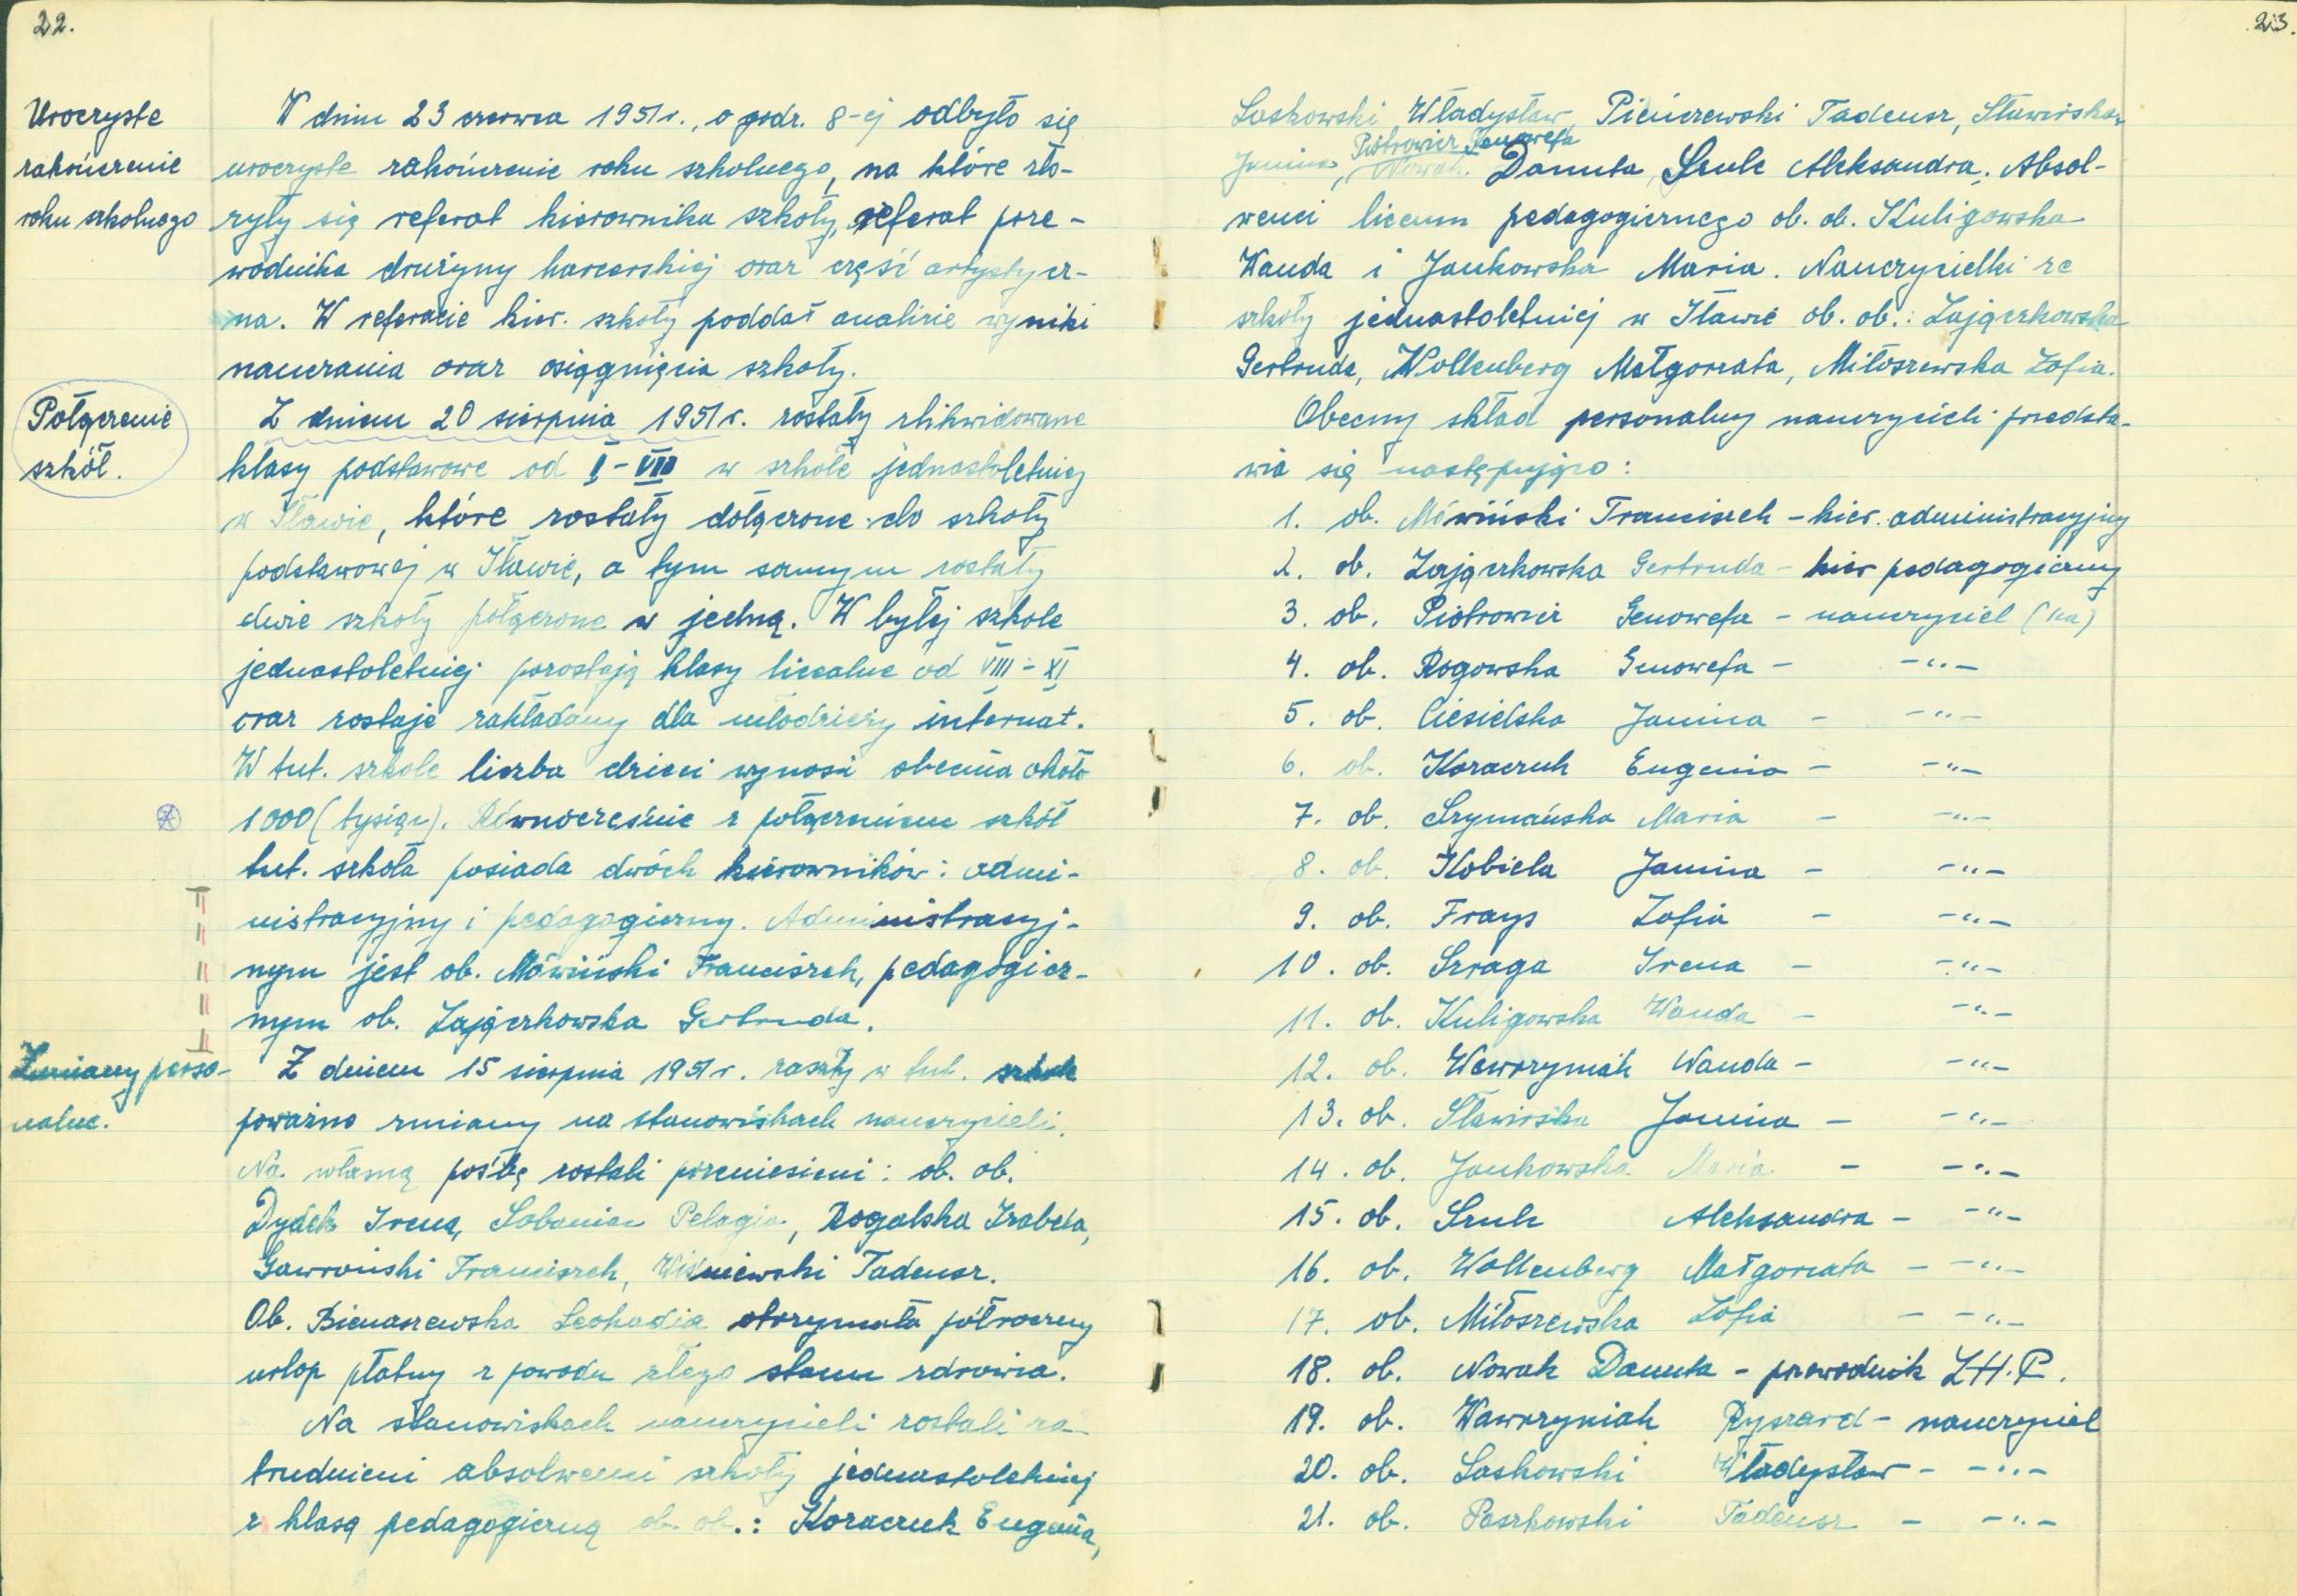 22.
Uroczyste
zakończenie
roku szkolnego
W dniu 23 czerwca 1951r., o godz. 8-ej odbyło się
uroczyste zakończenie roku szkolnego, na które zło-
żyły się referat kierownika szkoły, referat prze-
wodnika drużyny harcerskiej oraz część artystycz-
na. W referacie kier. szkoły poddał analizie wyniki
nauczania oraz osiągnięcia szkoły.
Połączenie
szkół.
Z dniem 20 sierpnia 1951r. zostały zlikwidowane
klasy podstawowe od I-VII w szkole jednastoletniej
w Iławie, które zostały dołączone do szkoły
podstawowej w Iławie, a tym samym zostały
dwie szkoły połączone w jedną. W byłej szkole
jednastoletniej pozostają klasy licealne od VIII-XI
oraz zostaje zakładany dla młodzieży internat.
W tut. szkole liczba dzieci wynosi obecnie około
1000 (tysiąc). Równocześnie z połączeniem szkół
tut. szkoła posiada dwóch kierowników: admi-
nistracyjny i pedagogiczny. Administracyj-
nym jest ob. Mówiński Franciszek, pedagogicz-
nym ob. Zajączkowska Gertruda.
Zmiany perso-
nalne.
Z dniem 15 sierpnia 1951r. zaszły w tut. szkole
poważne zmiany na stanowiskach nauczycieli.
Na własną prośbę zostali przeniesieni: ob. ob.
Dydek Irena, Łobaniec Pelagia, Rogalska Izabela,
Gawroński Franciszek, Wiśniewski Tadeusz.
Ob. Bienaszewska Leokadia otrzymała półroczny
urlop płatny z powodu złego stanu zdrowia.
Na stanowiskach nauczycieli zostali za-
trudnieni absolwenci szkoły jednastoletniej
z klasą pedagogiczną ob. ob.: Koraczuk Eugenia,
23.
Laskowski Władysław, Pieńczewski Tadeusz, Sławińska
Piotrowicz Genowefa
Janina, Nowak Danuta, Szulc Aleksandra. Absol-
wenci liceum pedagogicznego ob. ob. Kuligowska
Wanda i Jankowska Maria. Nauczycielki ze
szkoły jednastoletniej w Iławie ob. ob.: Zajączkowska
Gertruda, Wollenberg Małgorzata, Miłoszewska Zofia.
Obecny skład personalny nauczycieli przedsta-
wia się następująco:
1. ob. Mówiński Franciszek - kier. administracyjny
2. ob. Zajączkowska Gertruda - kier pedagogiczny
3. ob. Piotrowicz Genowefa - nauczyciel (ka)
4. ob. Rogowska Genowefa - -"-
5. ob. Ciesielska Janina - -"-
6. ob. Koraczuk Eugenia - -"-
7. ob. Szymańska Maria - -"-
8. ob. Kobiela Janina - -"-
9. ob. Frays Zofia - -"-
10. ob. Szraga Irena - -"-
11. ob. Kuligowska Wanda - -"-
12. ob. Wawrzyniak Wanda - -"-
13. ob. Sławińska Janina - -"-
14. ob. Jankowska Maria - -"-
15. ob. Szulc Aleksandra - -"-
16. ob. Wollenberg Małgorzata - -"-
17. ob. Miłoszewska Zofia - -"-
18. ob. Nowak Danuta - przewodnik Z.H.P.
19. ob. Wawrzyniak Ryszard - nauczyciel
20. ob. Laskowski Władysław - -"-
21. ob. Paszkowski Tadeusz - -"-